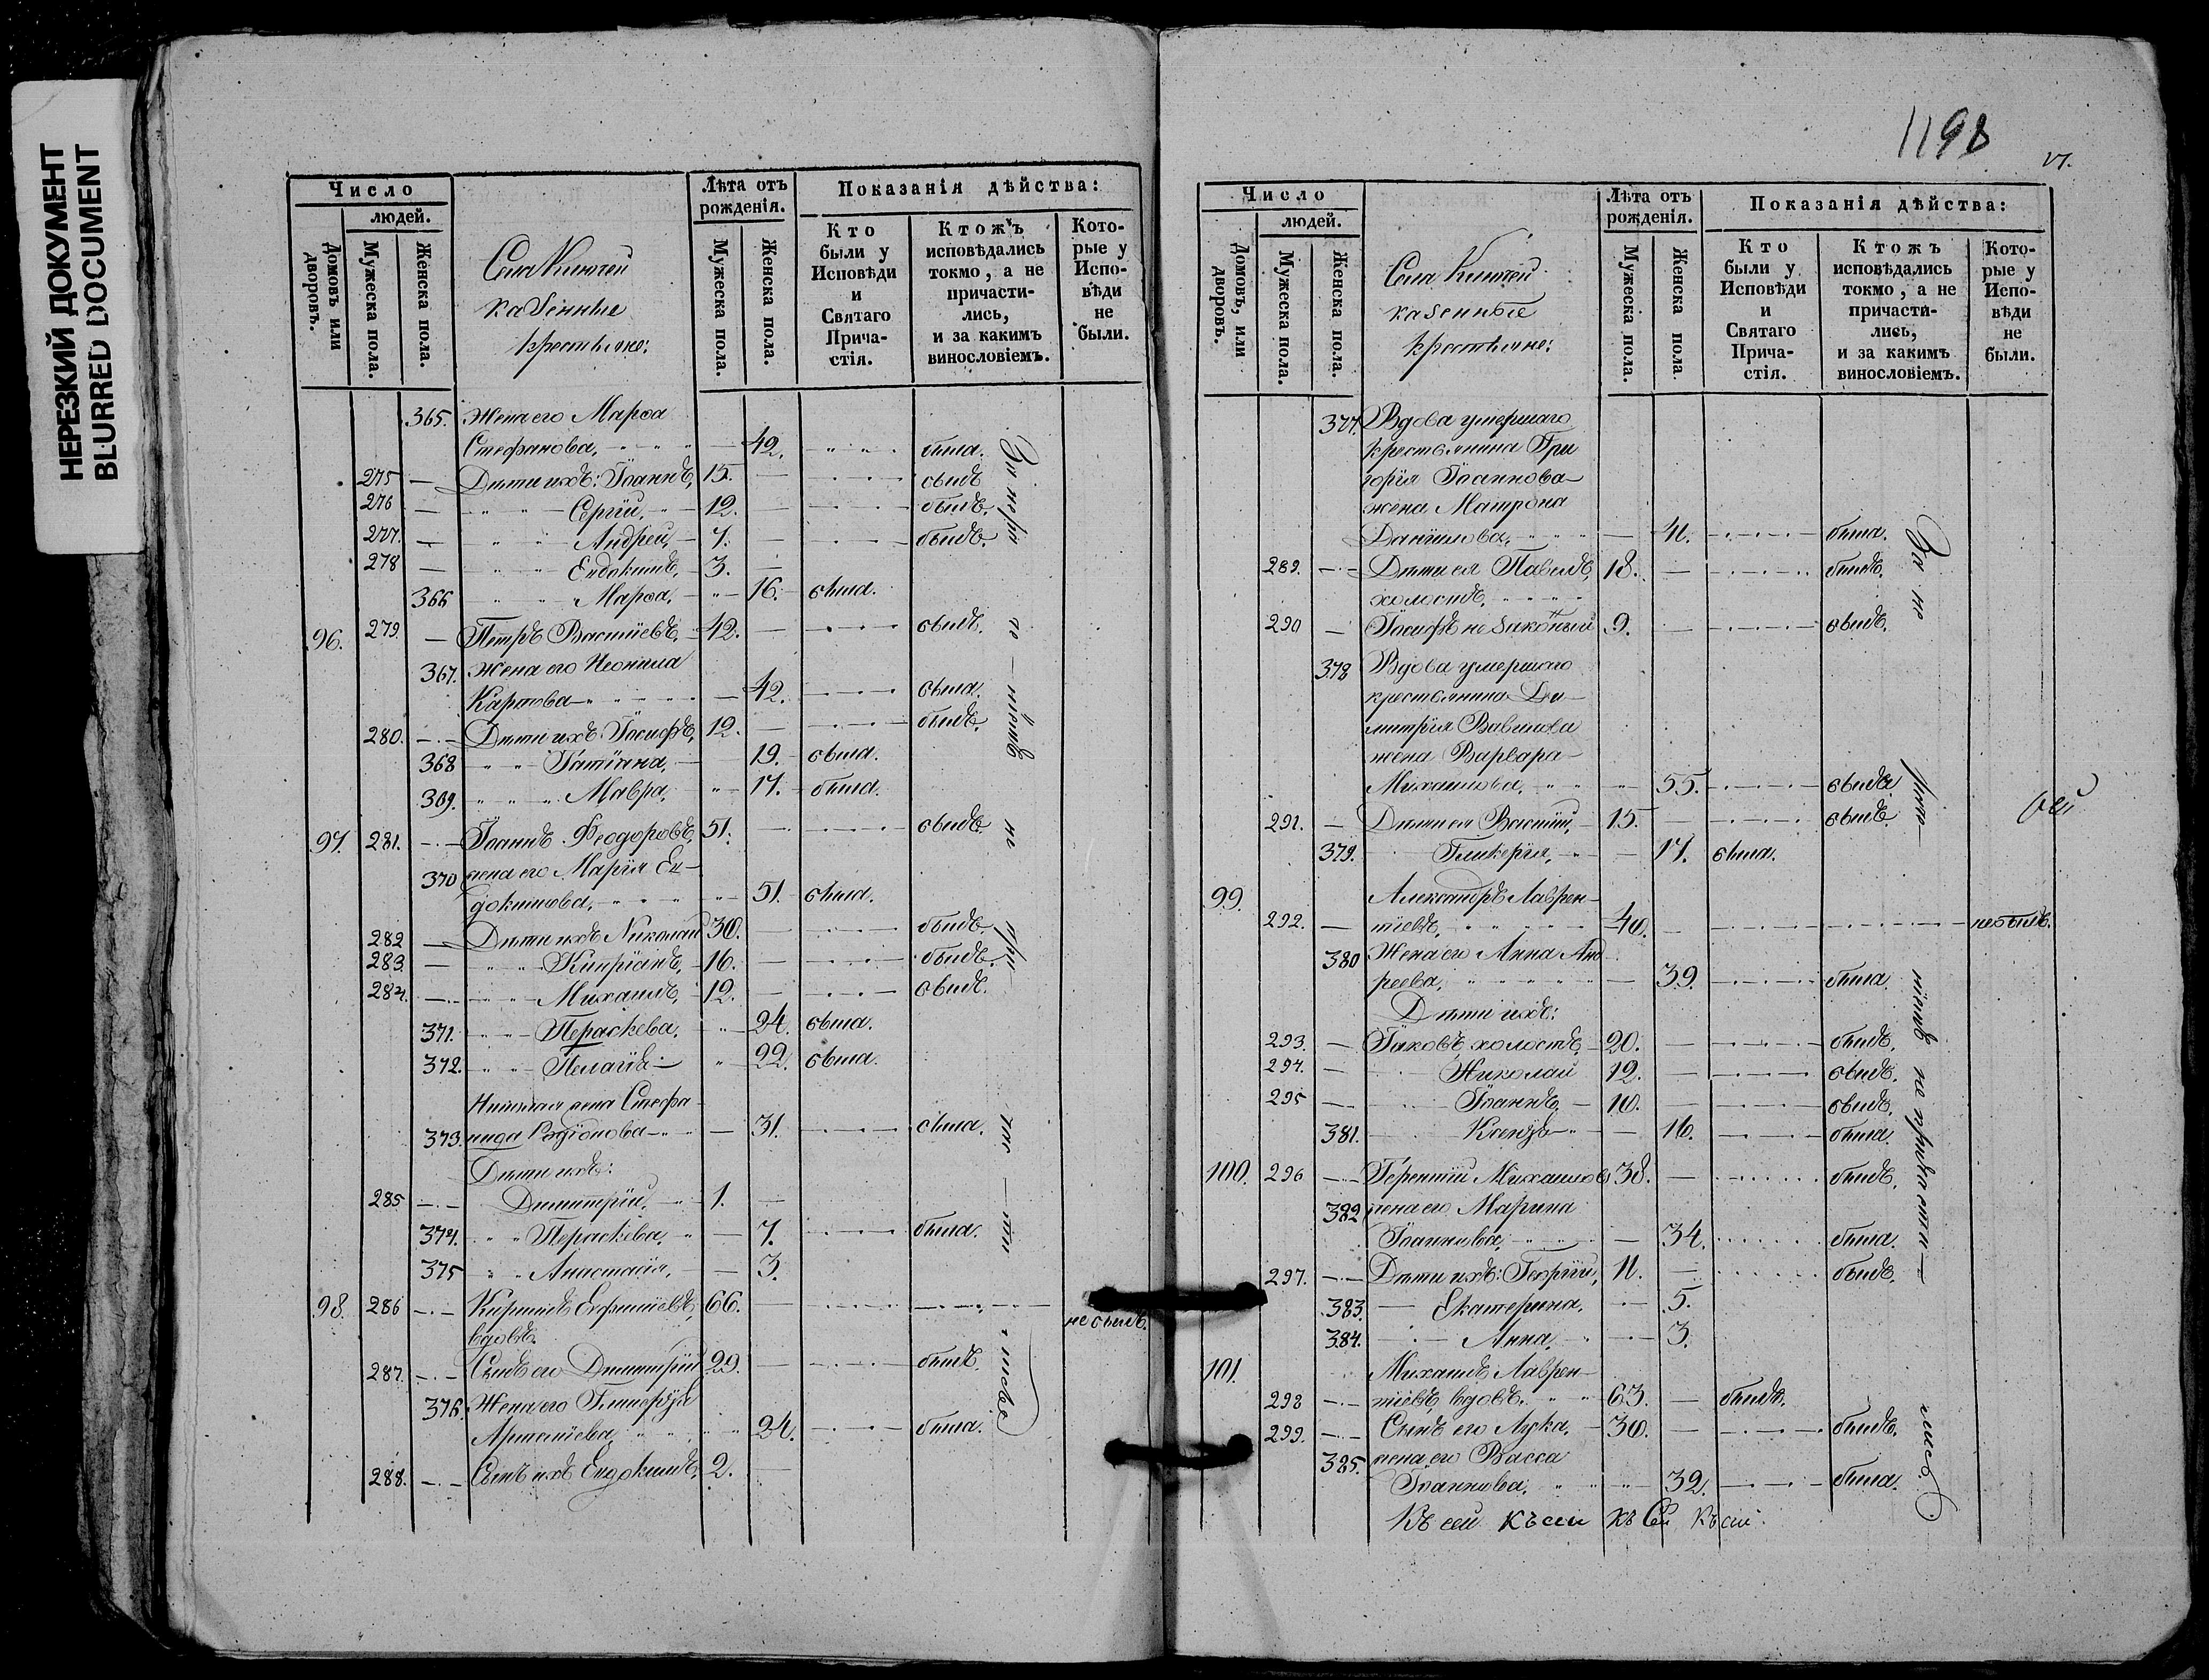 НЕРЕЗКИЙ ДОКУМЕНТ
BLURRED DOCUMENT
Число
людей.
Домовъ или дворовъ.
Мужеска пола.
Женска пола.
Села
казенные
крестьяне:
Лѣта отъ рожденія.
Мужеска пола.
Женска пола.
Показанія дѣйства:
Кто были у Исповѣди и Святаго Прича-стія.
Ктожъ исповѣдались токмо, а не причасти-лись, и за какимъ винословіемъ.
Кото-рые у Испо-вѣди не были.
365. Жена его Марѳа
Стефанова, 42. была.
275 Дѣти ихъ: Іоаннъ, 15. былъ
276 Сергій, 12. былъ.
277. Андрей, 7. былъ.
278 Евдокимъ, 3.
366 Марѳа, 16. была.
96. 279. Петръ Васпліевъ, 42. былъ.
367. Жена его Неонила
Карпова 42. была.
280. Дѣти ихъ Іосифъ, 12. былъ.
368 Татіана, 19. была.
369. Мавра, 17. была.
97. 281. Іоаннъ Феодоровъ, 51. былъ
370 жена его Марія Ев-
докимова, 51. была.
282 Дѣти ихъ Николай 30. былъ.
283. Кипріанъ, 16. былъ.
284. Михаилъ, 12. былъ.
371. Параскева, 24. была.
372. Пелагія 22. была.
жена Стефа-
373. нида Родіонова 31. была.
Дѣти ихъ:
285 Димитрій, 1.
374. Параскева, 7. была.
375 Анастасія, 3.
98. 286 Кириллъ 66. не былъ.
вдовъ.
287. Сынъ его Димитрій 29. былъ.
376. Жена его Гликерія
24. была.
288. Сынъ ихъ Евдокимъ, 2.
За нерачѣ не причастились
1198
Число
людей.
Домовъ, или дворовъ.
Мужеска пола.
Женска пола.
Села
казенные
крестьяне:
Лѣта отъ рожденія.
Мужеска пола.
Женска пола
Показанія дѣйства:
Кто были у Исповѣди и Святаго Прича-стія.
Ктожъ исповѣдались токмо, а не причасти-лись, и за какимъ винословіемъ.
Кото-рые у Испо-вѣди не были.
377. Вдова умершаго
крестьянина Гри
горія Іоаннова
жена Матрона
Даніилова, 41. была.
289. Дѣти ея Павелъ, 18. былъ.
холостъ,
290 Іосифъ незаконый 9. былъ.
378 Вдова умершаго
крестьянина Ди-
митрія Вавилова
жена Варвара
Михаилова, 55. была
291. Дѣти ея Василій, 15. былъ.
379. Гликерія, 17. была.
99. Александръ Лаврен-
292. тіевъ, 40. не былъ.
380 Жена его Анна Анд
реева, 39. была.
Дѣти ихъ:
293. Іаковъ холостъ, 20. былъ.
294. Николай 12. былъ.
295 Іоаннъ, 10. былъ.
381. 16. была.
100. 296 Терентій Михаиловъ 38. былъ.
382 жена его Марина
Іоаннова, 34. была.
297. Дѣти ихъ: Георгій, 11. былъ.
383. Екатерина, 5.
384. Анна, 3.
101. Михаилъ Лаврен-
298 тіевъ, вдовъ. 63. былъ.
299. Сынъ его Лука, 30. былъ.
385. жена его Васса
Іоаннова, 32. была.
Къ сей Къ сей Къ Сей Къ сей